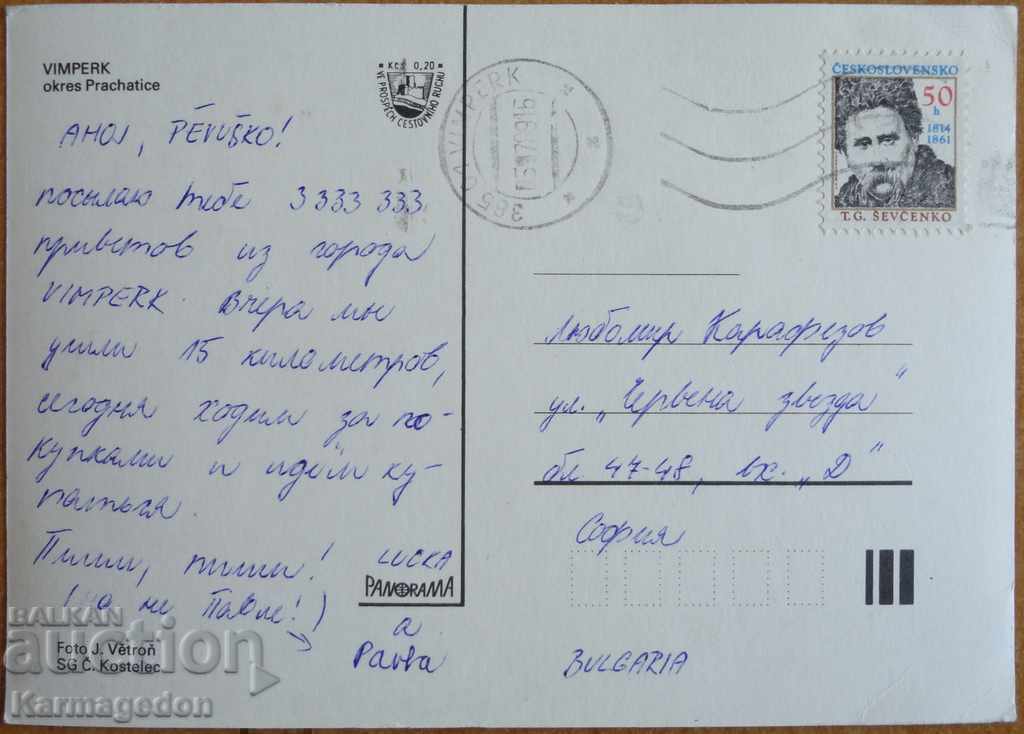 VIMPERK
okres Prachatice
Kčs 0,20
VE PROSPĚCH CESTOVNÍHO RUCHU
385 VIMPERK
ČESKOSLOVENSKO
50
h
1814
1861
T.G. ŠEVČENKO
AHOJ, PĚVUŠKO!
посылаю тебе 3333 333
приветов из города
VIMPERK. Вчера мы
ушли 15 километров,
сегодня ходим за по-
купками и идём ку-
паться.
Пиши, пиши!
(но не Павле!)
LUCKA
a
Pavla
PANORAMA
Foto J. Větroň
SG Č. Kostelec
Любомир Карафезов
ул. „Червена звезда"
бл 47-48, вх. „Д"
София
BULGARIA
BALKAN
auction
Karmagedon